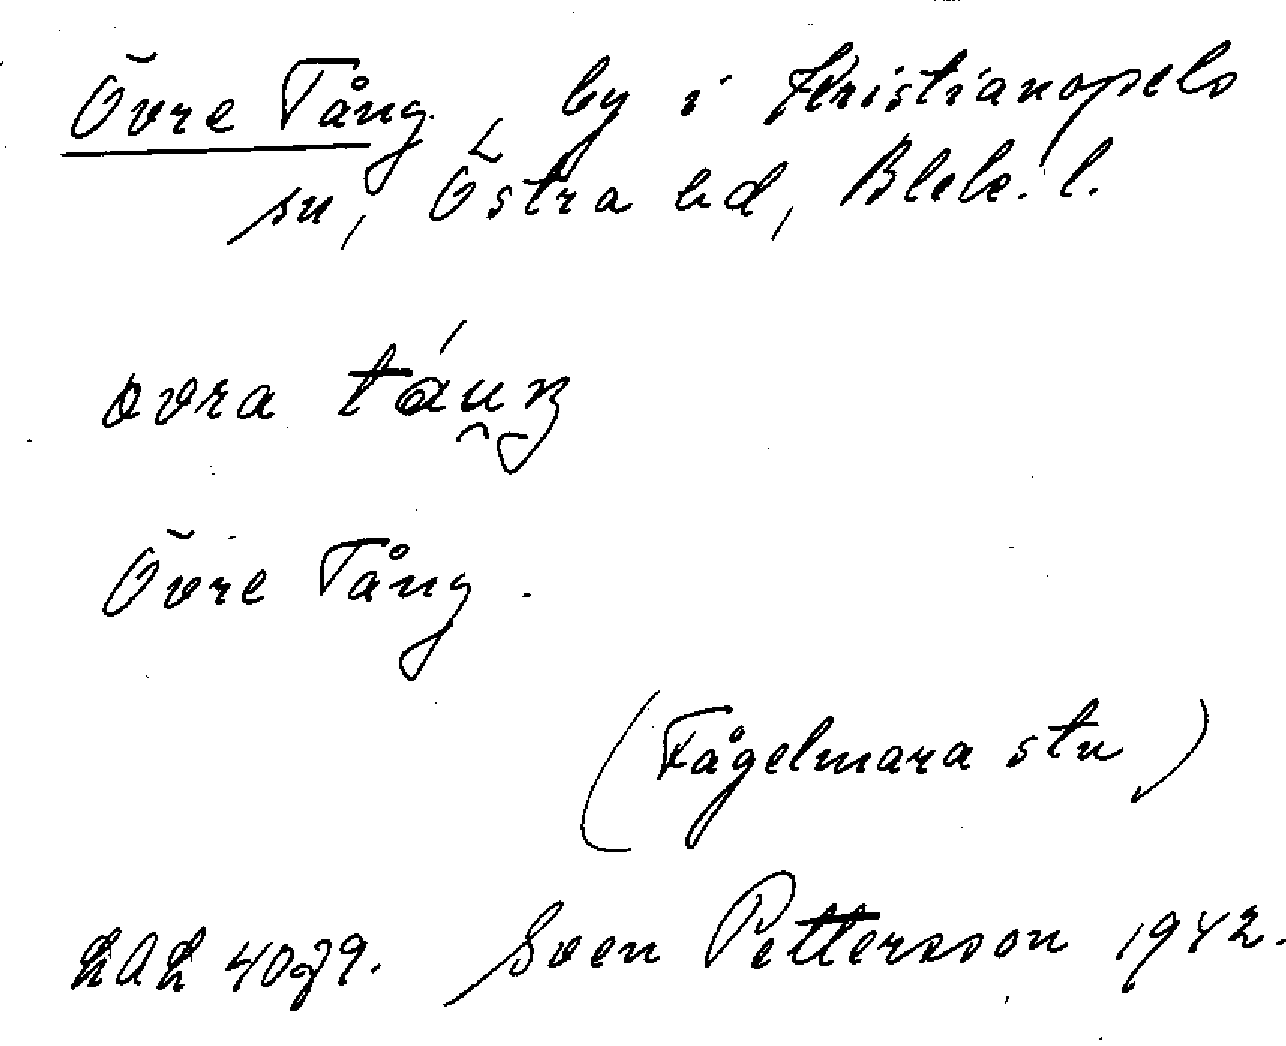 Övre Tång, by i Kristianopels
sn, Östra hd, Blek. l.
Övre Tång.
(Fågelmara stn)
LAL 4079. Sven Pettersson 1942.